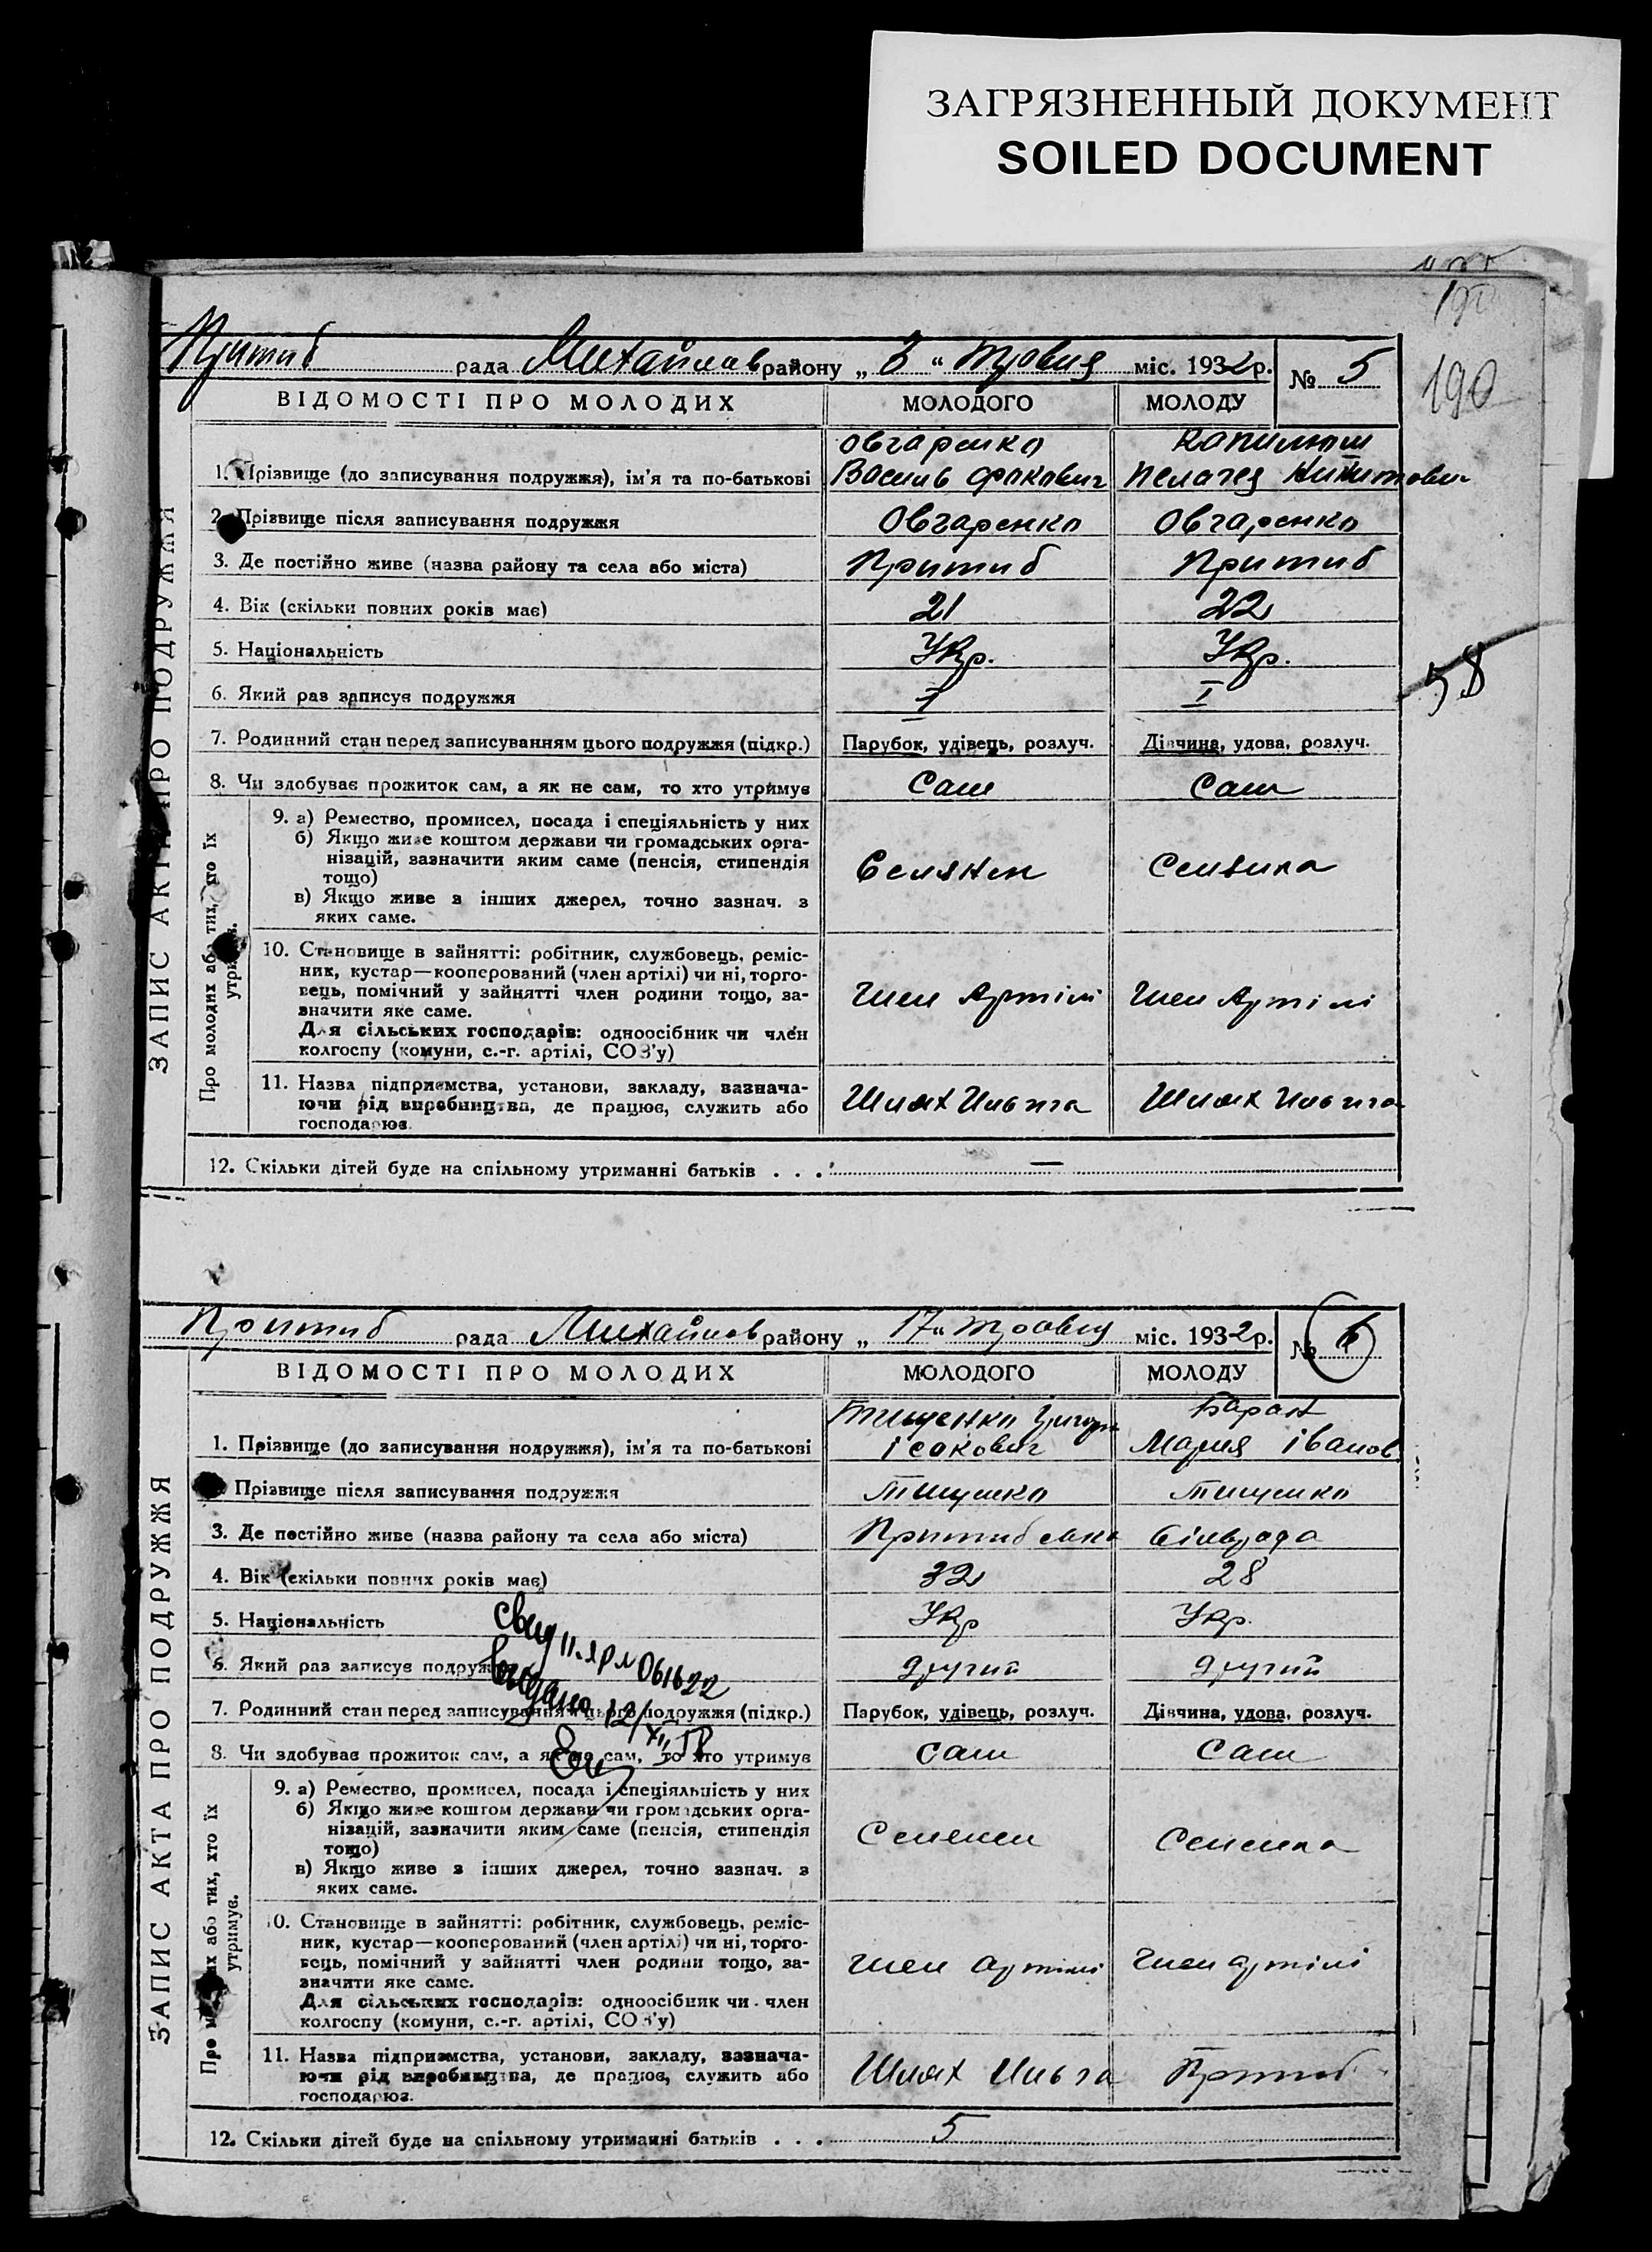 ЗАГРЯЗНЕННЫЙ ДОКУМЕНТ
SOILED DOCUMENT
190
190
58
ЗАПИС АКТА ПРО ПОДРУЖЖЯ
Притиб рада Михайлов району „ 3 “ травня міс. 1932 р. № 5
ВІДОМОСТІ ПРО МОЛОДИХ МОЛОДОГО МОЛОДУ
Овгаренко
1. Прізвище (до записування подружжя), ім'я та по-батькові Василь Пелагея Никитович
2. Прізвище після записування подружжя Овгаренко Овгаренко
3. Де постійно живе (назва району та села або міста) Притиб Притиб
4. Вік (скільки повних років має) 21 22
5. Національність Укр. Укр.
6. Який раз записує подружжя I I
7. Родинний стан перед записуванням цього подружжя (підкр.) Парубок, удівець, розлуч. Дівчина, удова, розлуч.
8. Чи здобуває прожиток сам, а як не сам, то хто утримує Сам Сам
Про молодих або тих, хто їх утримує.
9. а) Ремество, промисел, посада і спеціяльність у них
б) Якщо живе коштом держави чи громадських орга-
нізацій, зазначити яким саме (пенсія, стипендія
тощо)
Селянин Селянка
в) Якщо живе з інших джерел, точно зазнач. з
яких саме.
10. Становище в зайнятті: робітник, службовець, реміс-
ник, кустар—кооперований (член артілі) чи ні, торго-
вець, помічний у зайнятті член родини тощо, за-
значити яке саме.
Член Артілі Член Артілі
Для сільських господарів: одноосібник чи член
колгоспу (комуни, с.-г. артілі, СОЗ'у)
11. Назва підприємства, установи, закладу, зазнача-
ючи рід виробництва, де працює, служить або
господарює.
Шлях Ильича Шлях Ильича
12. Скільки дітей буде на спільному утриманні батьків . . . —
ЗАПИС АКТА ПРО ПОДРУЖЖЯ
Притиб рада Михайлов району „ 17 “ травня міс. 1932 р. № 6
ВІДОМОСТІ ПРО МОЛОДИХ МОЛОДОГО МОЛОДУ
Тищенко Григорій Баран
1. Прізвище (до записування подружжя), ім'я та по-батькові Ісакович Мария Іванов.
2. Прізвище після записування подружжя Тищенко Тищенко
3. Де постійно живе (назва району та села або міста) Притибська Сільрада
4. Вік (скільки повних років має) 32 28
5. Національність Укр Укр.
Свид II-ЯР № 061622
6. Який раз записує подружжя другий другий
видано 12/XII
7. Родинний стан перед записуванням цього подружжя (підкр.) Парубок, удівець, розлуч. Дівчина, удова, розлуч.
8. Чи здобуває прожиток сам, а як не сам, то хто утримує сам сам
Про молодих або тих, хто їх утримує.
9. а) Ремество, промисел, посада і спеціяльність у них
б) Якщо живе коштом держави чи громадських орга-
нізацій, зазначити яким саме (пенсія, стипендія
тощо)
Селенин Селенка
в) Якщо живе з інших джерел, точно зазнач. з
яких саме.
10. Становище в зайнятті: робітник, службовець, реміс-
ник, кустар—кооперований (член артілі) чи ні, торго-
вець, помічний у зайнятті член родини тощо, за-
значити яке саме.
член артілі член артілі
Для сільських господарів: одноосібник чи член
колгоспу (комуни, с.-г. артілі, СОЗ'у)
11. Назва підприємства, установи, закладу, зазнача-
ючи рід виробництва, де працює, служить або
господарює.
Шлях Ильча Притиб
12. Скільки дітей буде на спільному утриманні батьків . . . 5